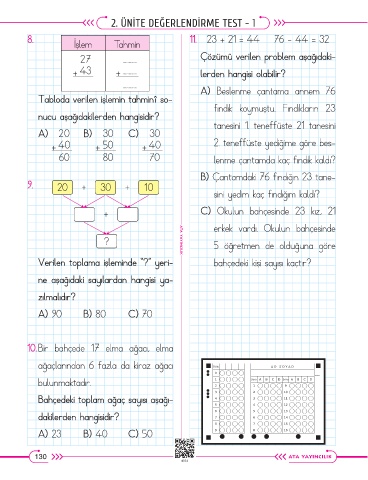 2. ÜNİTE DEĞERLENDİRME TEST - 1
8.
İşlem Tahmin
27 ........
+ 43 + ........
........
Tabloda verilen işlemin tahminî so-
nucu aşağıdakilerden hangisidir?
A) 20 B) 30 C) 30
+ 40 + 50 + 40
60 80 70
9.
20 + 30 + 10
+
?
Verilen toplama işleminde "?" yeri-
ne aşağıdaki sayılardan hangisi ya-
zılmalıdır?
A) 90 B) 80 C) 70
10. Bir bahçede 17 elma ağacı, elma
ağaçlarından 6 fazla da kiraz ağacı
bulunmaktadır.
Bahçedeki toplam ağaç sayısı aşağı-
dakilerden hangisidir?
A) 23 B) 40 C) 50
11. 23 + 21 = 44 76 - 44 = 32
Çözümü verilen problem aşağıdaki-
lerden hangisi olabilir?
A) Beslenme çantama annem 76
fındık koymuştu. Fındıkların 23
tanesini 1. teneffüste 21 tanesini
2. teneffüste yediğime göre bes-
lenme çantamda kaç fındık kaldı?
B) Çantamdaki 76 fındığın 23 tane-
sini yedim kaç fındığım kaldı?
C) Okulun bahçesinde 23 kız, 21
erkek vardı. Okulun bahçesinde
5 öğretmen de olduğuna göre
bahçedeki kişi sayısı kaçtır?
AD SOYAD
130
ATA YAYINCILIK